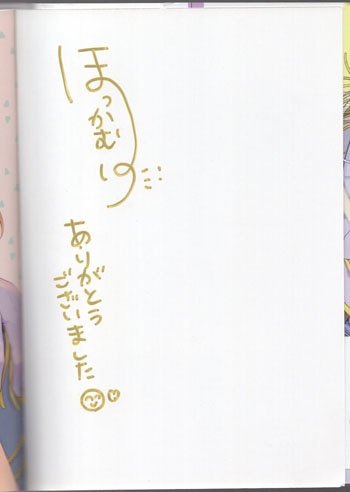 ほっかむり
ありがとう
ございました